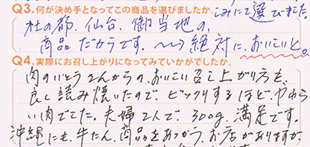 Q3.何が決め手となってこの商品を選びましたか
こみにて選びました。
杜の都、仙台、御当地の、
商品だからです。〜〜〉絶対に、おいしいと。
Q4.実際にお召し上がりになってみていかがでしたか。
肉のいとうさんからの、おいしい召し上がり方を、
良く読み焼いたので、ビックリするほど、やわらか
い肉でした。夫婦2人で、300g、満足です。
沖縄にも、牛たん、商品をあつかう、お店がありますが、